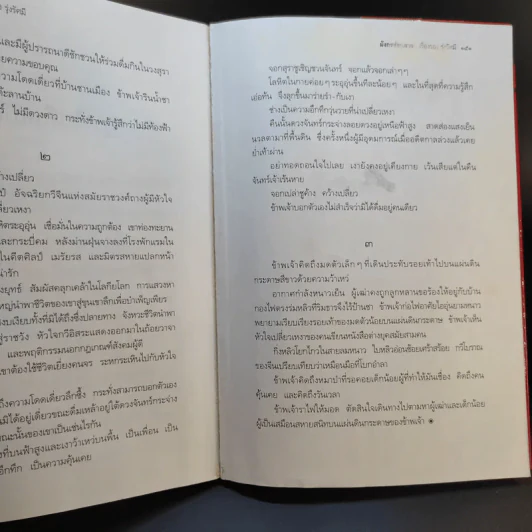 รุ่งรัศมี
และมีผู้ปรารถนาดีชักชวนให้ร่วมดื่มกินในวงสุรา
ยความขอบคุณ
ความโดดเดี่ยวที่บ้านชานเมือง ข้าพเจ้ารินน้ำชา
ะลานบ้าน
ร์ ไม่มีดวงดาว กระทั่งข้าพเจ้ารู้สึกว่าไม่มีท้องฟ้า
๒
างเปลี่ยว
ป์ อัจฉริยกวีจีนแห่งสมัยราชวงศ์ถางผู้มีหัวใจ
เหงา
ตระอุอุ่น เชื่อมั่นในความถูกต้อง เขาท่องทะยาน
และกระบี่คม หลังม่านฝุ่นจางลงที่โรงพักแรมใน
ในคีตศิลป์ เมรัยรส และมิตรสหายแปลกหน้า
น่ารัก
งยุทธ์ สัมผัสคลุกเคล้าในโลกียโลก การแสวงหา
ใหญ่นำพาชีวิตของเขาสู่ขุนเขาลึกเพื่อบำเพ็ญเพียร
งบเงียบทั้งที่มิได้ถึงซึ่งปลายทาง จังหวะชีวิตนำพา
สู่ราชวัง หัวใจกวีอิสระแสดงออกมาในถ้อยวาจา
และพฤติกรรมนอกกฎเกณฑ์สังคมผู้ดี
เขาต้องใช้ชีวิตเยี่ยงคนจร ระหกระเหินไปกับหัวใจ
ถึงความโดดเดี่ยวลึกซึ้ง กระทั่งสามารถบอกตัวเอง
มิได้อยู่เดี่ยวขณะดื่มเหล้าอยู่ใต้ดวงจันทร์กระจ่าง
ขณะนั้นของเขาเป็นเช่นไรกัน
งที่บนฟ้าสูงและเงาว้าเหว่บนพื้น เป็นเพื่อน เป็น
อีกทึก เป็นความคุ้นเคย
จอกสุราชูเชิญชวนจันทร์ จอกแล้วจอกเล่าๆๆ
โลหิตในกายค่อยๆ ระอุอุ่นขึ้นทีละน้อยๆ และในที่สุดที่ความรู้สึก
เอ่อท้น จึงลุกขึ้นมาร่ายรำ-กับเงา
ช่างเป็นความอึกทึกวุ่นวายที่น่าเปลี่ยวเหงา
คืนนั้นดวงจันทร์กระจ่างลอยดวงอยู่เหนือฟ้าสูง สาดส่องแสงเย็น
นวลตามาที่พื้นดิน ซึ่งครั้งหนึ่งผู้มีอุดมการณ์เมื่ออดีตกาลล่วงแล้วเคย
ย่ำเท้าผ่าน
อย่าทอดถอนใจไปเลย เรายังคงอยู่เคียงกาย เว้นเสียแต่ในคืน
จันทร์เจ้าเร้นหาย
จอกเปล่าชูค้าง คว้างเปลี่ยว
ข้าพเจ้าบอกตัวเองไม่สำเร็จว่ามิได้ดื่มอยู่คนเดียว
๓
ข้าพเจ้าคิดถึงมดตัวเล็กๆ ที่เดินประทับรอยเท้าไปบนแผ่นดิน
กระดาษสีขาวด้วยความว้าเหว่
อากาศกำลังหนาวเย็น ผู้เฒ่าคงถูกลูกหลานขอร้องให้อยู่กับบ้าน
กองไฟดวงร่มหลิวที่ริมธารจึงไร้ป้านชา ข้าพเจ้าก่อไฟอาศัยไออุ่นยามหนาว
พยายามเรียบเรียงรอยเท้าของมดตัวน้อยบนแผ่นดินกระดาษ ข้าพเจ้าเห็น
หัวใจเปลี่ยวเหงาของคนเขียนหนังสือต่างยุคสมัยสามคน
กิ่งหลิวโยกไกวในสายลมหนาว ใบหลิวอ่อนช้อยคร่ำสร้อย กวีโบราณ
ของจีนเปรียบเทียบว่าเหมือนมือที่โบกอำลา
ข้าพเจ้าคิดถึงหมาป่าที่รอคอยเด็กน้อยผู้ที่ทำให้มันเชื่อง คิดถึงคน
คุ้นเคย และคิดถึงวันเวลา
ข้าพเจ้าราไฟให้มอด ตัดสินใจเดินทางไปตามหาผู้เฒ่าและเด็กน้อย
ผู้เป็นเสมือนสหายสนิทบนแผ่นดินกระดาษของข้าพเจ้า